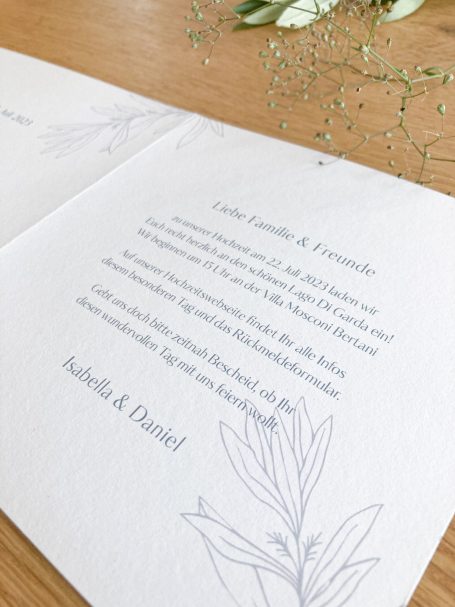 Juli 2023
Liebe Familie & Freunde
zu unserer Hochzeit am 22. Juli 2023 laden wir
Euch recht herzlich an den schönen Lago Di Garda ein!
Wir beginnen um 15 Uhr an der Villa Mosconi Bertani
Auf unserer Hochzeitswebseite findet Ihr alle Infos
diesem besonderen Tag und das Rückmeldeformular.
Gebt uns doch bitte zeitnah Bescheid, ob Ihr
diesen wundervollen Tag mit uns feiern wollt.
Isabella & Daniel